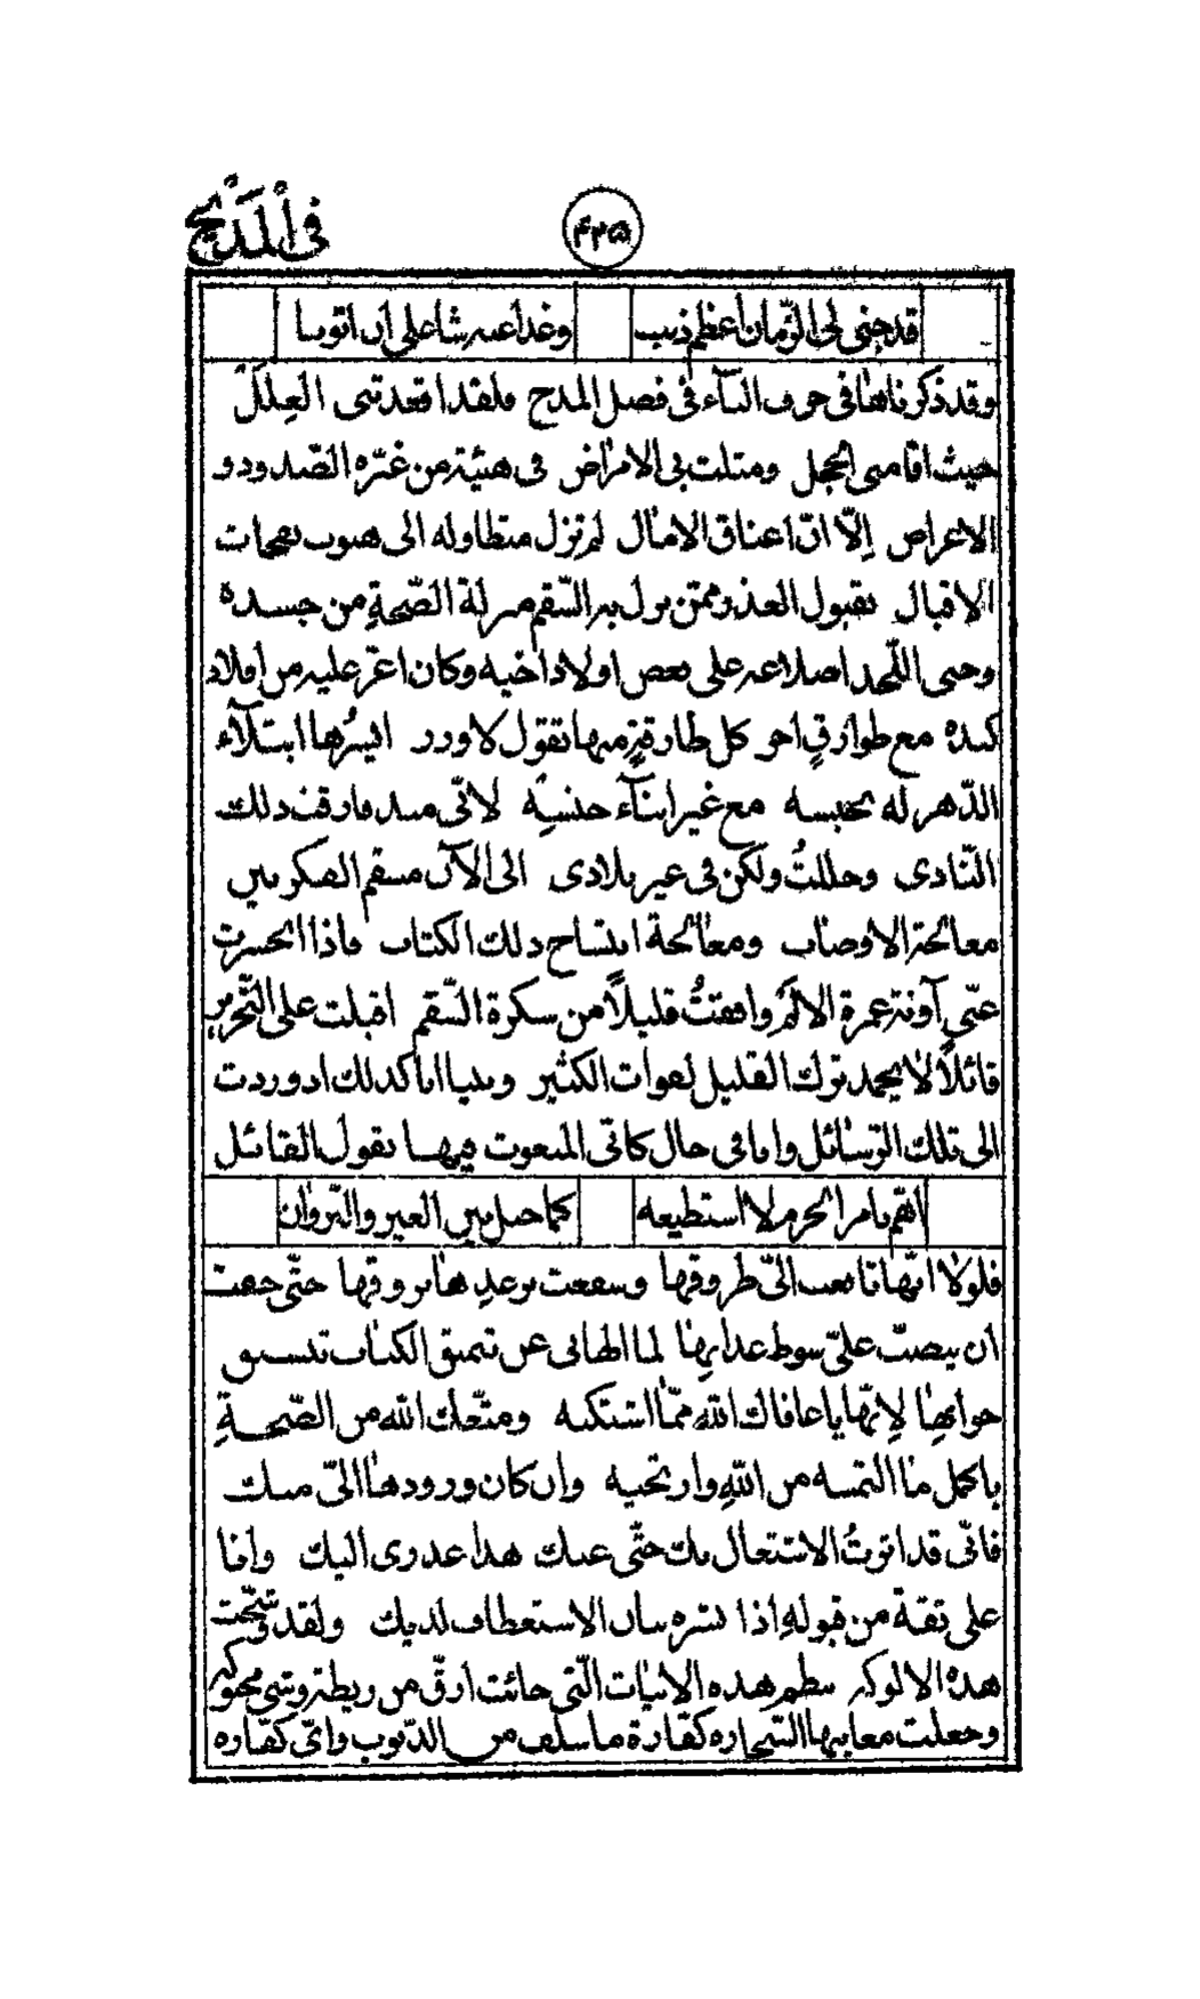 في المديح
٤٢٥
قد جنى لى الزمان أعظم ذنب وغدا عنه شاعلى أن اتوبا
وقد ذكرناها فى حرف البآء فى فصل المدح ولقد اقعدتنى العِلَل
حيث اقامنى الخجل ومثلت بى الامراض فى هيئة من غرّه الصّدود و
الاعراض إلّا انّ اعناق الامال لم تزل متطاوله الى هبوب نفحات
الاقبال بقبول العذر ممّن نزل به السّقم منزلة الصّحةِ من جسده
وحنى اضلاعه على بعض اولاد أخيه وكان اعزّ عليه من أولاد
كبده مع طوارقٍ احر كل طارقةٍ منها تقول لاوزر ايسرُها ابتلآء
الدّهر له بحبسه مع غير ابنآء جنسِه لانّى منذ فارقت ذلك
النّادى وحللتُ ولكن فى غير بلادى الى الآن مسقم الفكر بين
معالجة الاوصاب ومعالجة انتساخ ذلك الكتاب فاذا انحسرت
عنّى آونة غمرة الالم وافقتُ قليلاً من سكرة السّقم اقبلت على التّحرير
قائلاً لا يحمد ترك القليل لفوات الكثير وبينا انا كذلك اذ وردت
الى تلك الرّسائل وانا فى حال كانّى المنعوت فيها بقول القائل
اهمّ بامر الحزم لا استطيعه كما حيل بين العير والنّزوان
فلولا انّها تابعت الىّ طروقها وسفعت برعدِها بروقها حتّى خفت
ان يصبّ علىّ سوط عذابِها لما الهانى عن تنميق الكتاب تنسيق
جوابِها لِانّها يا عافاك الله ممّا اشتكيه ومتّعك الله من الصّحةِ
باكمل ما التمسه من اللهِ وارتجيه وان كان ورودها الىّ منك
فانّى قد اثرتُ الاشتغال بك حتّى عنك هذا عذرى اليك وانا
على ثقة من قبولهِ اذا نشره بنان الاستعطاف لديك ولقد وشّحت
هذه الالوكه بنظم هذهِ الابيات الّتى جائت ارقّ من ريطة وشى محوكه
وجعلت معانيها السّحاره كفّارة ما سلف من الذّنوب وايّ كفّاره